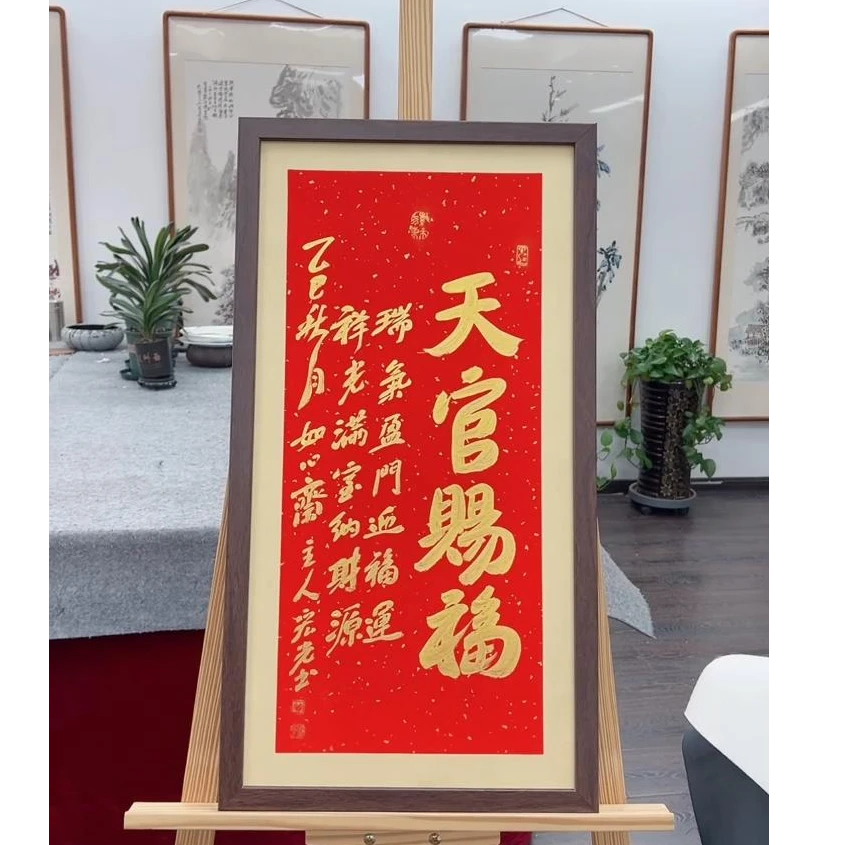 天官賜福
瑞氣盈門迎福運
祥光滿室納財源
乙巳秋月如心齋主人宏光书